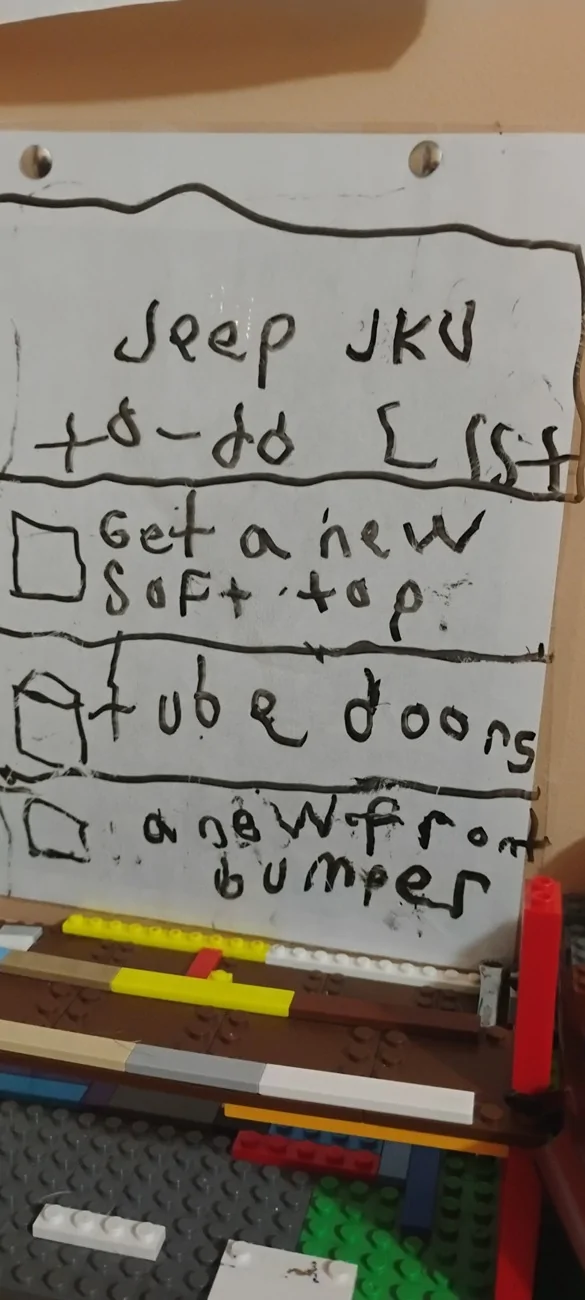 Jeep JKU
to-do List
Get a new
Soft top
tube doors
a new front
bumper